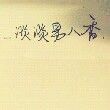 淡淡男人香